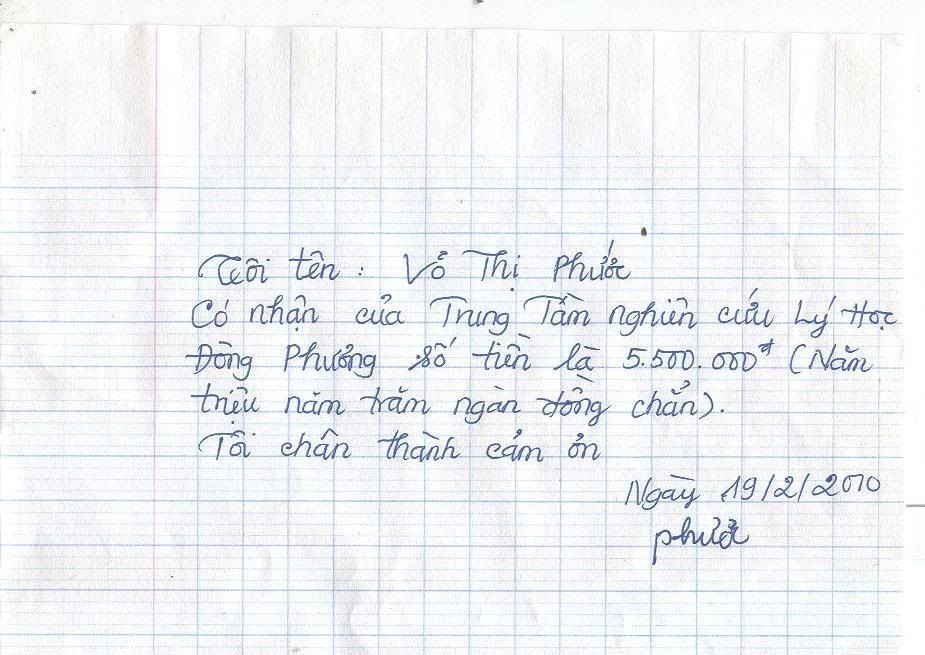 Tôi tên : Võ Thị Phước
Có nhận của Trung Tâm nghiên cứu Lý Học
Đông Phương số tiền là 5.500.000đ (Năm
triệu năm trăm ngàn đồng chẵn).
Tôi chân thành cảm ơn
Ngày 19/2/2010
Phước